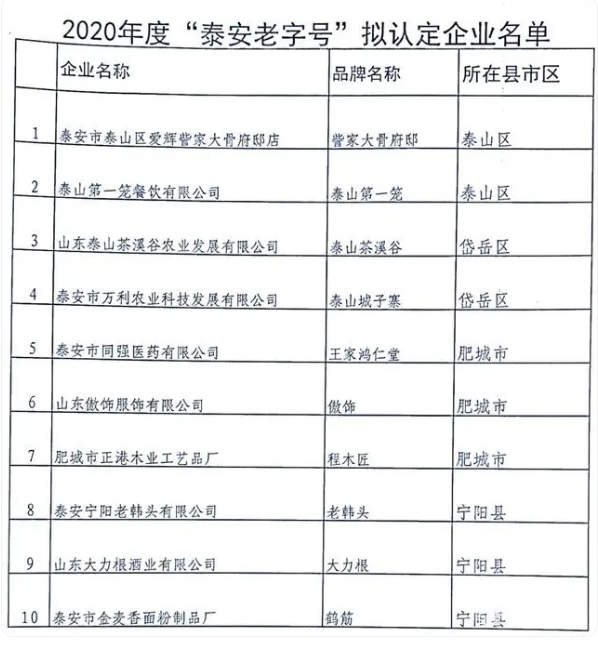 2020年度“泰安老字号”拟认定企业名单
企业名称 品牌名称 所在县市区
1 泰安市泰山区爱辉訾家大骨府邸店 訾家大骨府邸 泰山区
2 泰山第一笼餐饮有限公司 泰山第一笼 泰山区
3 山东泰山茶溪谷农业发展有限公司 泰山茶溪谷 岱岳区
4 泰安市万利农业科技发展有限公司 泰山城子寨 岱岳区
5 泰安市同强医药有限公司 王家鸿仁堂 肥城市
6 山东傲饰服饰有限公司 傲饰 肥城市
7 肥城市正港木业工艺品厂 程木匠 肥城市
8 泰安宁阳老韩头有限公司 老韩头 宁阳县
9 山东大力根酒业有限公司 大力根 宁阳县
10 泰安市金麦香面粉制品厂 鹤筋 宁阳县